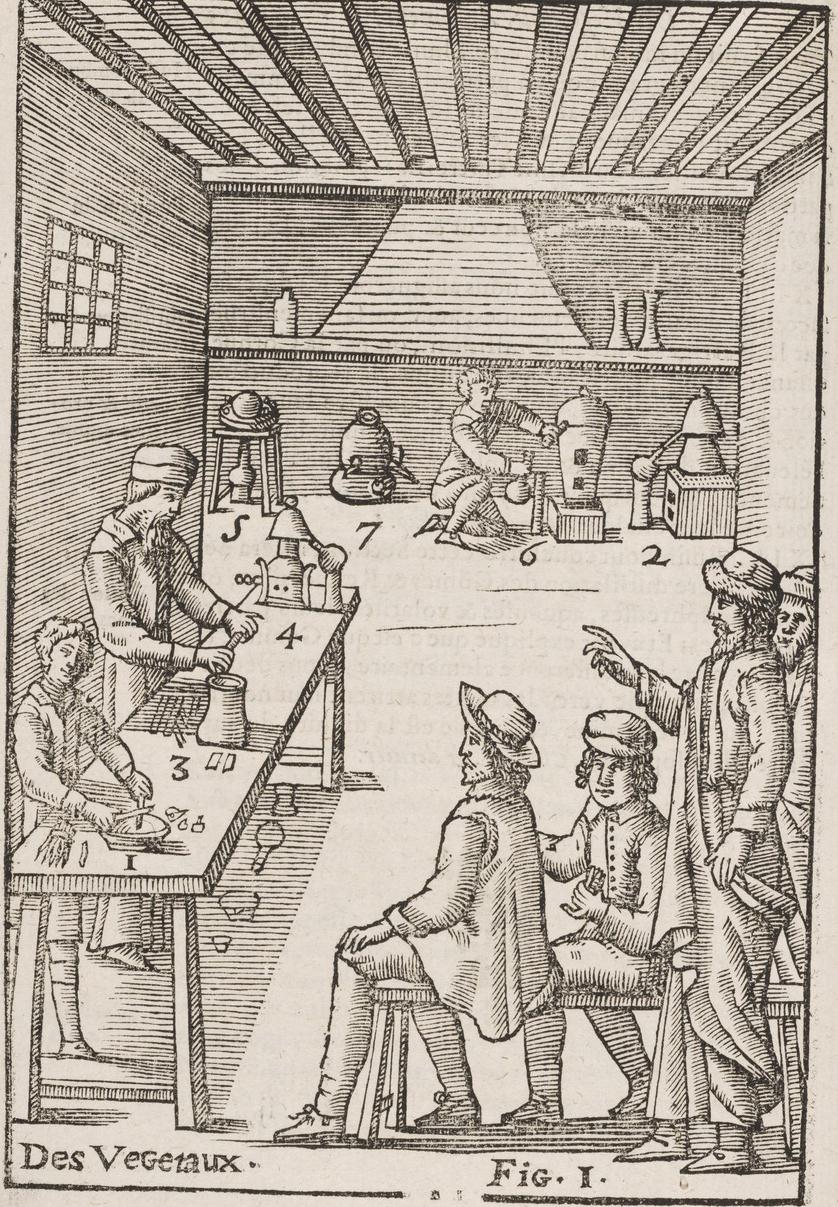 5
7
6
2
4
3
1
Des Vegetaux.
Fig. 1.